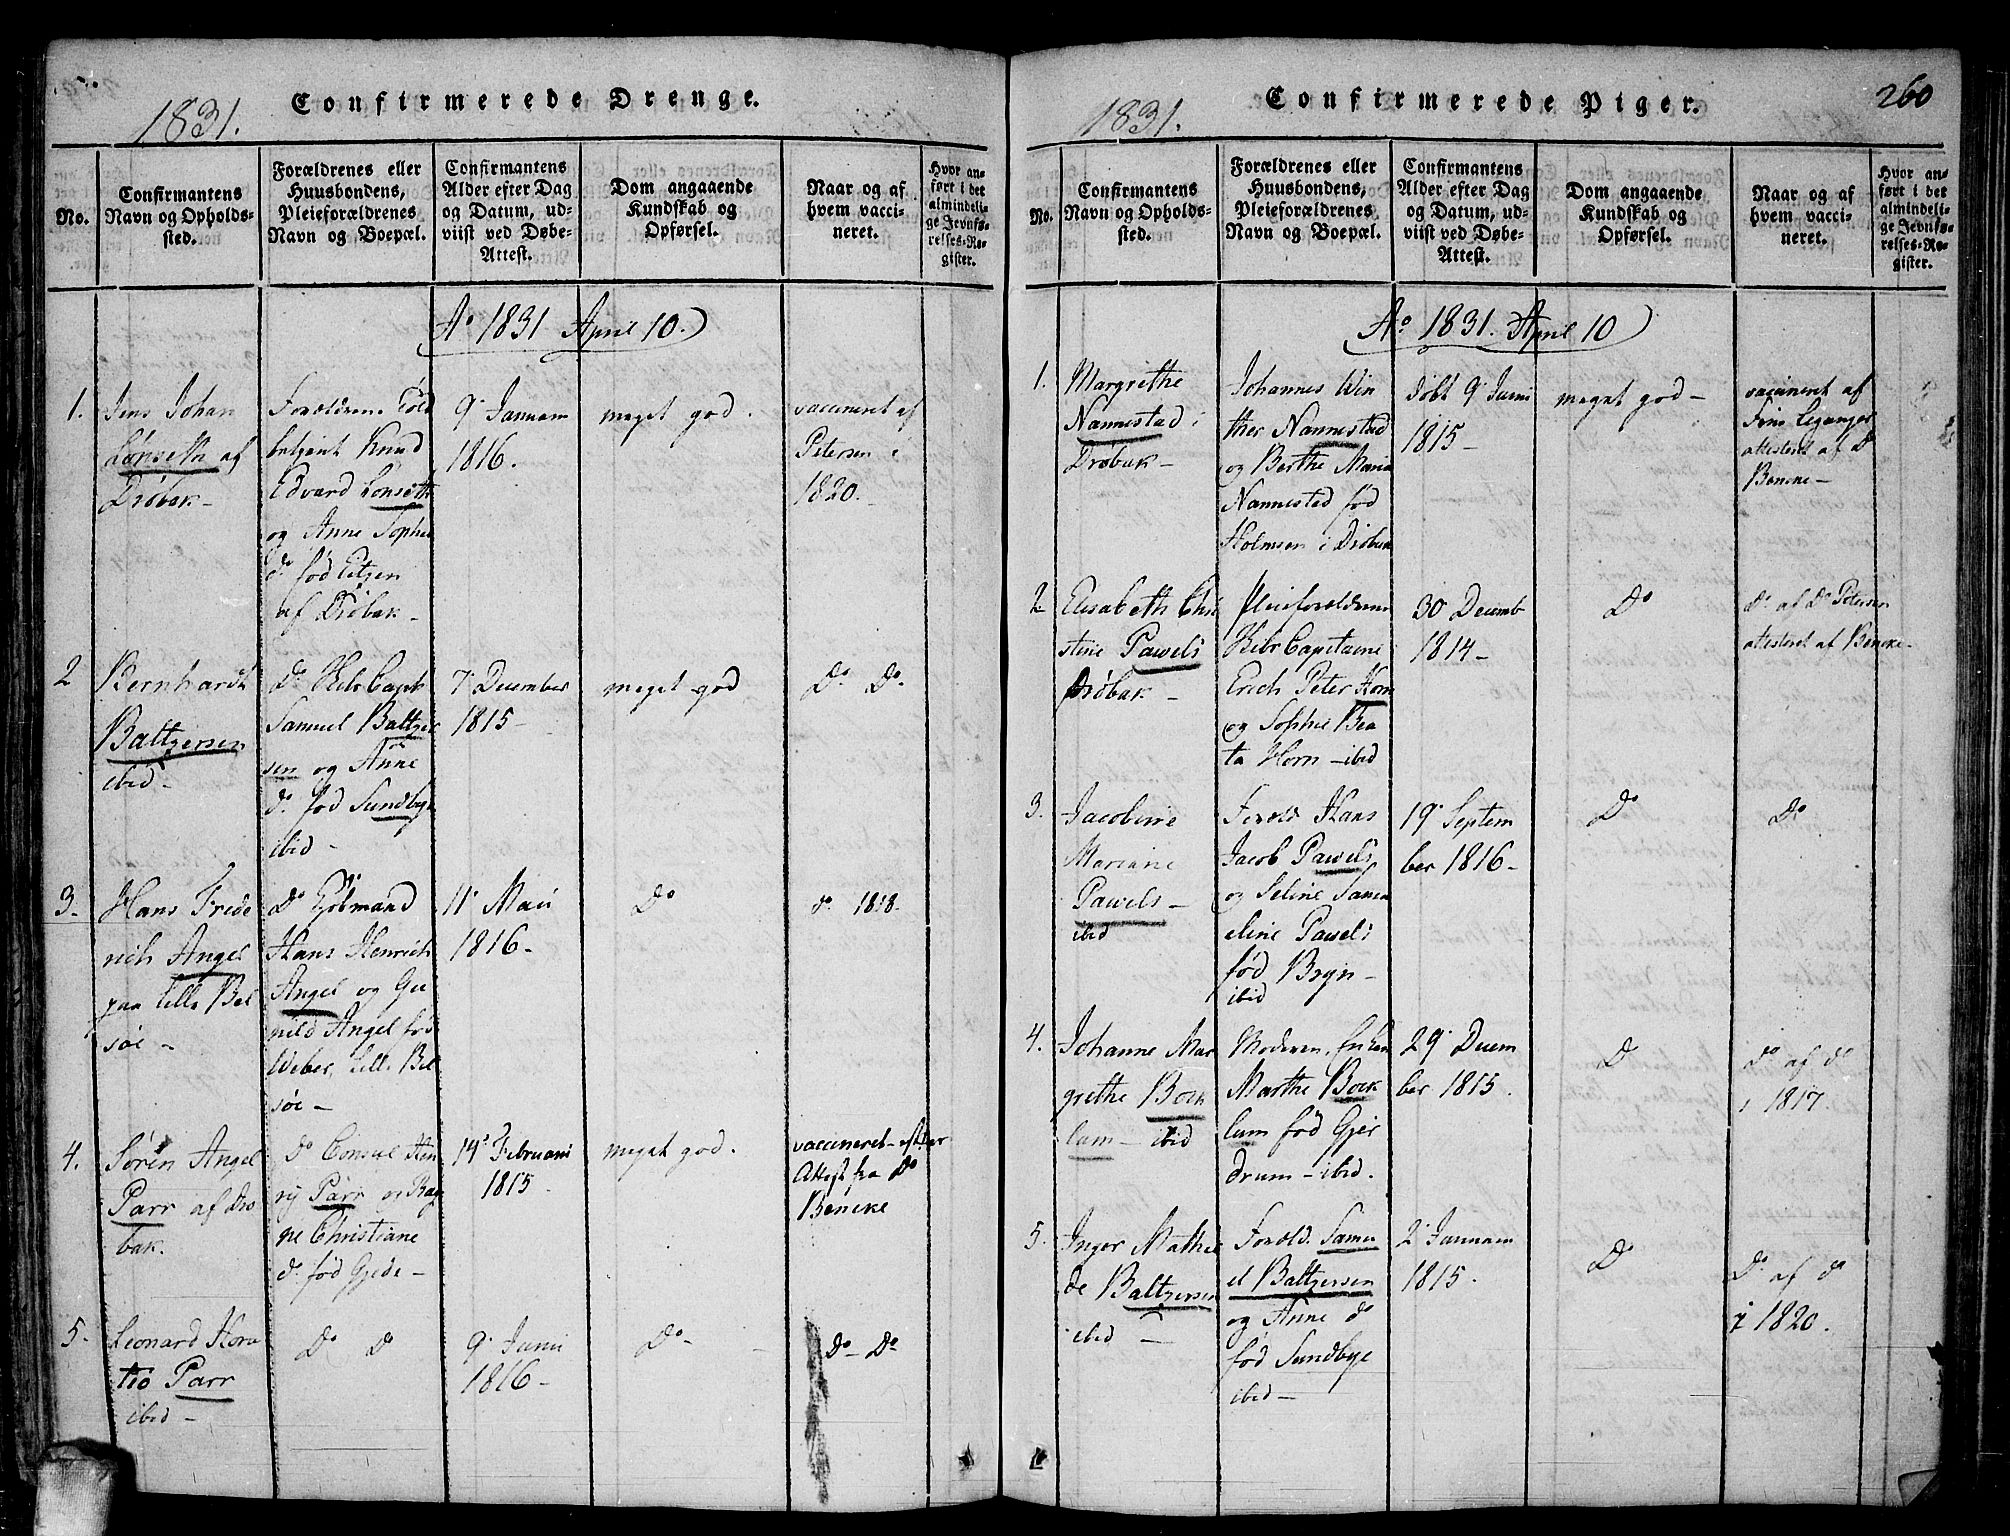 1831.
Confirmerede Drenge.
No.
Confirmantens
Navn og Opholds-
sted.
Forældrenes eller
Huusbondens,
Pleieforældrenes
Navn og Boepæl.
Confirmantens
Alder efter Dag
og Datum, ud-
viist ved Døbe-
Attest.
Dom angaaende
Kundskab og
Opførsel.
Naar og af
hvem vacci-
neret.
Hvor an-
ført i det
almindeli-
ge Jevnfø-
relses-Re-
gister.
Ao 1831 April 10.
1.
Jens Johan
Lønseth af
Drøbak-
Forældrene Told
betjent Knud
Edvard Lønseth
og Anne Sophie
do fød Eitzen
af Drøbak-
9 Januari
1816.
meget god.
vaccineret af
Petersen i
1820.
2
Bernhardt
Baltzersen
ibid-
Do Skibscapt
Samuel Baltzer
sen og Anne
do fød Sundbye
ibid-
7 December
1815-
meget god
Do Do
3.
Hans Frede
rich Angel
paa lille Bel
søe-
Do
Hans Henrich
Angel og Gu
nild Angel fød
Weber, lille Bel
søe-
11 Maii
1816-
Do
do 1818-
4.
Søren Angel
Parr af Drø
bak.
do Consul Hen
ry Parr og Rag
ne Christiane
do fød Gjede-
14 Februari
1815
meget god.
vaccineret efter
Attest fra Dr
Beneke
5.
Leonard Hora
tio Parr
ibid-
Do D
9 Juni
1816-
Do
Do- Do
1831.
Confirmerede Piger.
260
No.
Confirmantens
Navn og Opholds-
sted.
Forældrenes eller
Huusbondens,
Pleieforældrenes
Navn og Boepæl.
Confirmantens
Alder efter Dag
og Datum, ud-
viist ved Døbe-
Attest.
Dom angaaende
Kundskab og
Opførsel.
Naar og af
hvem vacci-
neret.
Hvor an-
ført i det
almindeli-
ge Jevnfø-
relses-Re-
gister.
Ao 1831. April 10
1.
Margrethe
Nannestad i
Drøbak-
Johannes Win
ther Nannestad
og Berthe Maria
Nannestad fød
Holmsen i Drøbak
døbt 9 Juni
1815-
meget god-
vaccineret af
Leganger
attesteret af D
Beneke-
2
Elisabeth Chri
stine Pawels
Drøbak-
Pleieforældrene
Skibs Capitaine
Erich Peter Horn
og Sophie Bea
ta Horn-ibid
30 Decemb
1814-
Do
Do af Dr Petersen
attesteret af Beneke-
3.
Jacobine
Mariane
Pawels-
ibid
Foræld Hans
Jacob Pawels
og Seline Samu
eline Pawels
fød Bryn-
ibid
19 Septem
ber 1816-
Do
Do
4.
Johanne Mar
grethe Bock
lum-ibid
Moderen, Enken
Marthe Bock
lum fød Gjer
drum-ibid.
29 Decem
ber 1815.
D
Do af do
i 1817.
5.
Inger Mathil
de Baltzersen
ibid-
Foræld. Samu
el Baltzersen
og Anne do
fød Sundbye
ibid-
2 Januari
1815.
Do
Do af do
i 1820.